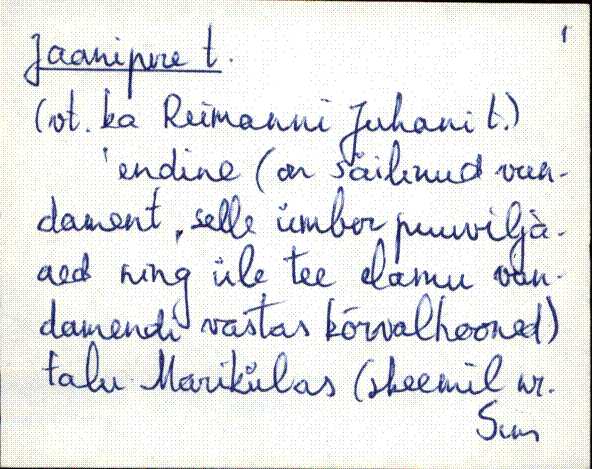 1
Jaanipere t.
(vt. ka Reimanni Juhani t.)
'endine (on säilinud vun-
dament, selle ümber puuvilja-
aed ning üle tee elamu vun-
damendi vastas kõrvalhooned)
talu Mariküllas (skeemil nr.